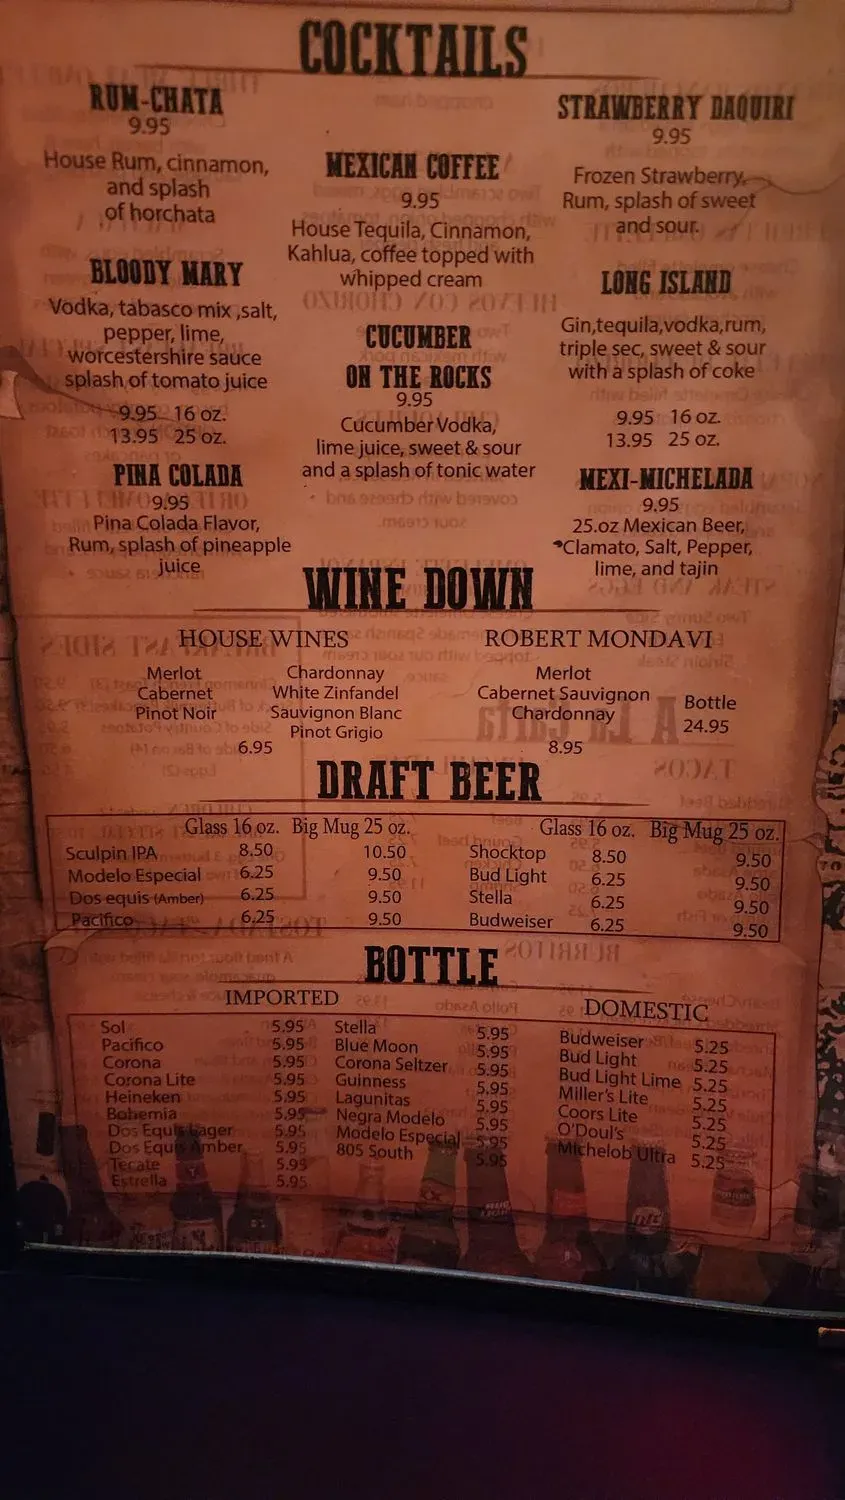 COCKTAILS
RUM-CHATA
9.95
House Rum, cinnamon,
and splash
of horchata
BLOODY MARY
Vodka, tabasco mix ,salt,
pepper, lime,
worcestershire sauce
splash of tomato juice
9.95 16 oz.
13.95 25 oz.
PINA COLADA
9.95
Pina Colada Flavor,
Rum, splash of pineapple
juice
MEXICAN COFFEE
9.95
House Tequila, Cinnamon,
Kahlua, coffee topped with
whipped cream
CUCUMBER
ON THE ROCKS
9.95
Cucumber Vodka,
lime juice, sweet & sour
and a splash of tonic water
STRAWBERRY DAQUIRI
9.95
Frozen Strawberry,
Rum, splash of sweet
and sour.
LONG ISLAND
Gin,tequila,vodka,rum,
triple sec, sweet & sour
with a splash of coke
9.95 16 oz.
13.95 25 oz.
MEXI-MICHELADA
9.95
25.oz Mexican Beer,
Clamato, Salt, Pepper,
lime, and tajin
WINE DOWN
HOUSE WINES
Merlot
Cabernet
Pinot Noir
Chardonnay
White Zinfandel
Sauvignon Blanc
Pinot Grigio
6.95
ROBERT MONDAVI
Merlot
Cabernet Sauvignon
Chardonnay
8.95
Bottle
24.95
DRAFT BEER
Glass 16 oz. Big Mug 25 oz.
Sculpin IPA 8.50 10.50
Modelo Especial 6.25 9.50
Dos equis (Amber) 6.25 9.50
Pacifico 6.25 9.50
Glass 16 oz. Big Mug 25 oz.
Shocktop 8.50 9.50
Bud Light 6.25 9.50
Stella 6.25 9.50
Budweiser 6.25 9.50
BOTTLE
IMPORTED
Sol 5.95
Pacifico 5.95
Corona 5.95
Corona Lite 5.95
Heineken 5.95
Bohemia 5.95
Dos Equis Lager 5.95
Dos Equis Amber 5.95
Tecate 5.95
Estrella 5.95
Stella 5.95
Blue Moon 5.95
Corona Seltzer 5.95
Guinness 5.95
Lagunitas 5.95
Negra Modelo 5.95
Modelo Especial 5.95
805 South 5.95
DOMESTIC
Budweiser 5.25
Bud Light 5.25
Bud Light Lime 5.25
Miller's Lite 5.25
Coors Lite 5.25
O'Doul's 5.25
Michelob Ultra 5.25